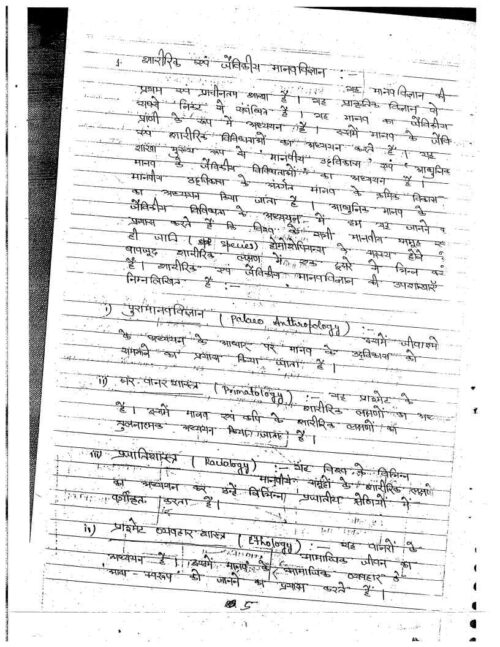 1. शारीरिक एवं जैविकीय मानवविज्ञान :- यह मानवविज्ञान की
प्रथम एवं प्राचीनतम शाखा है। यह प्राकृतिक विज्ञान से
सबसे निकट से संबंधित है। यह मानव का जैविकीय
प्राणी के रूप में अध्ययन है। इसमें मानव के जैवि
एवं शारीरिक विविधताओं का अध्ययन करते हैं। यह
शाखा मुख्य रूप से मानवीय उद्दविकास एवं आधुनिक
मानव के जैविकीय विविधताओं का अध्ययन है।
मानवीय उद्दविकास के अंतर्गत मानव के क्रमिक विकास
का अध्ययन किया जाता है। आधुनिक मानव के
जैविकीय विविधता के अध्ययन में हम यह जानने
प्रयास करते हैं कि विश्व के सभी मानवीय समूह एक
ही जाति (species) होमोसेपियन्स के सदस्य होने
बावजूद शारीरिक लक्षण में एक दूसरे से भिन्न
हैं। शारीरिक एवं जैविकीय मानवविज्ञान की उपशाखाएँ
निम्नलिखित हैं :-
i) पुरामानवविज्ञान (Palaeo Anthropology) :- इसमें जीवाश्मो
के अध्ययन के आधार पर मानव के उद्दविकास को
समझने का प्रयास किया जाता है।
ii) नर वानर शास्त्र (Primatology) :- यह प्राइमेट के
शारीरिक लक्षणों का अध
है। इसमें मानव एवं कपि के शारीरिक लक्षणों का
तुलनात्मक अध्ययन किया जाता है।
iii) प्रजातिशास्त्र (Raciology) :- यह विश्व के विभिन्न
मानवीय समूहों के शारीरिक लक्षणों
का अध्ययन कर उन्हें विभिन्न प्रजातीय श्रेणियों में
वर्गीकृत करता है।
iv) प्राइमेट व्यवहार शास्त्र (Ethology) :- यह वानरों के
सामाजिक जीवन का
अध्ययन है। इसमें मानव के सामाजिक व्यवहार के
स्वरूप को जानने का प्रयास करते हैं।
5